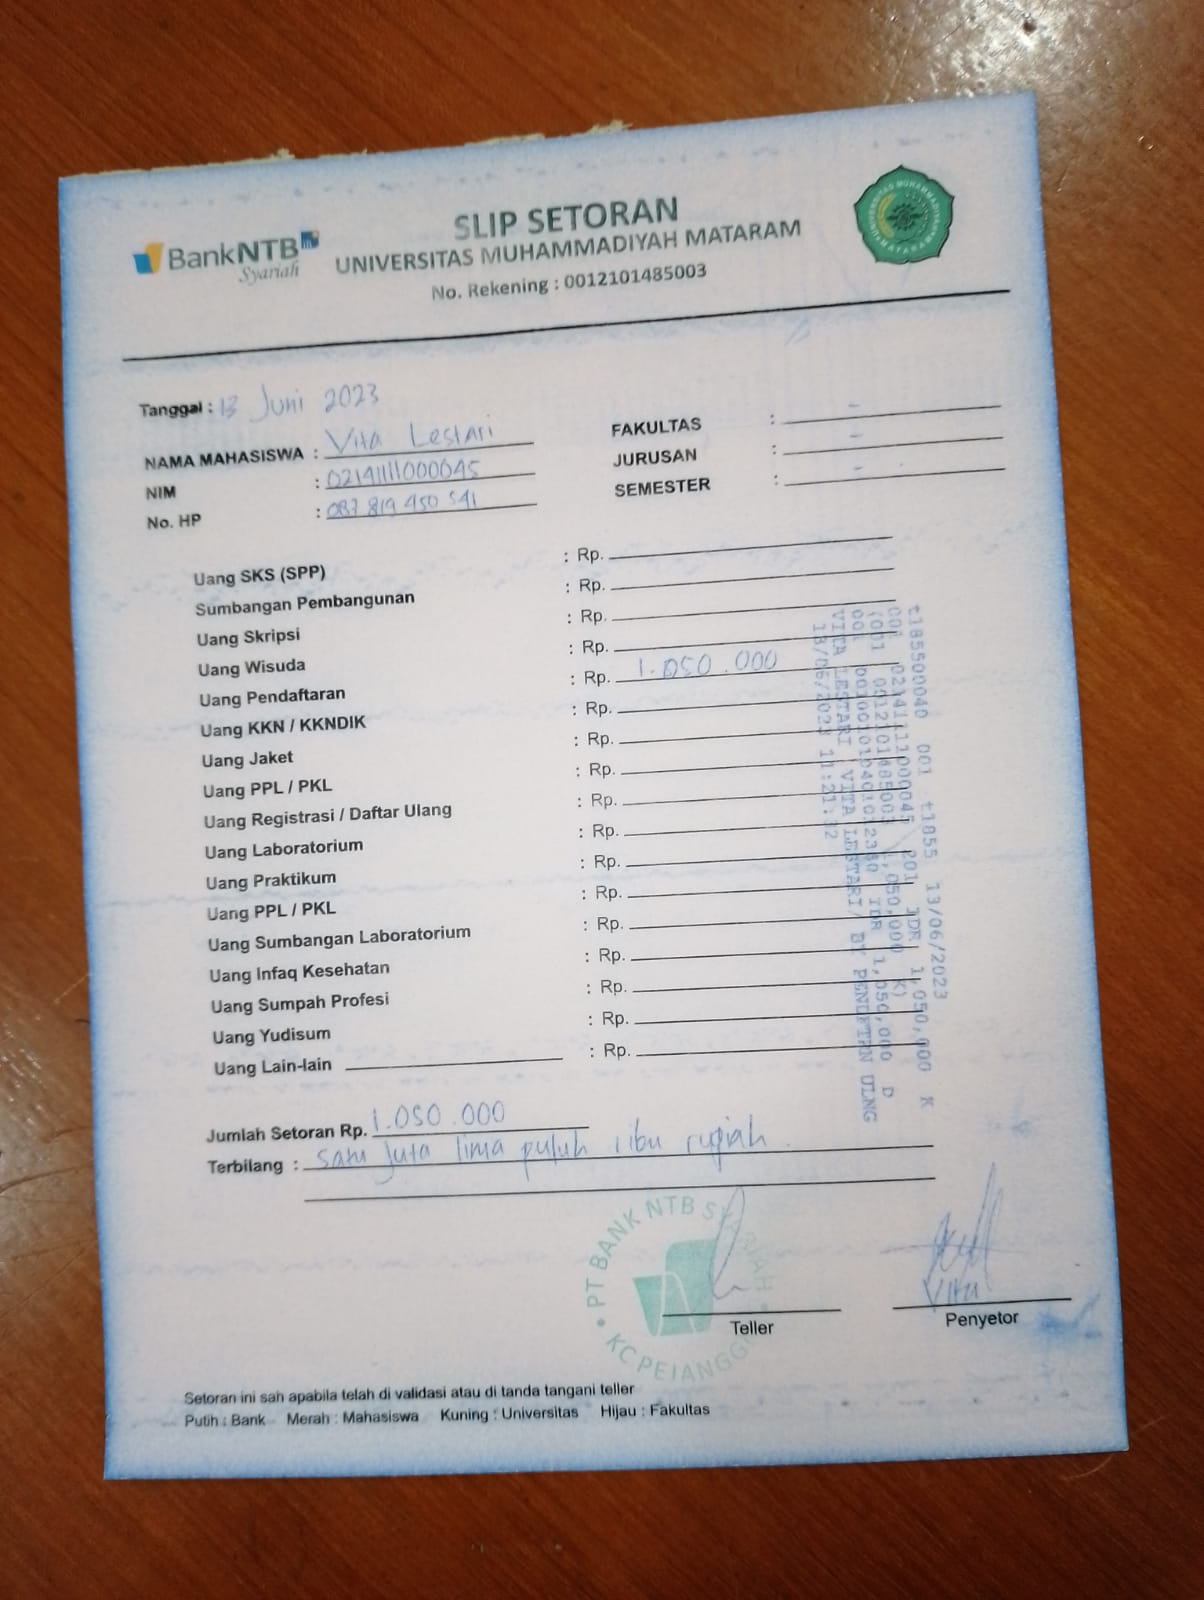 BankNTB
Syariah
SLIP SETORAN
UNIVERSITAS MUHAMMADIYAH MATARAM
No. Rekening : 0012101485003
UNIVERSITAS MUHAMMADIYAH MATARAM
Tanggal : 13 Juni 2023
NAMA MAHASISWA : Vita Lestari
NIM : 02141111000045
No. HP : 087 819 450 541
FAKULTAS : -
JURUSAN : -
SEMESTER : -
Uang SKS (SPP) : Rp.
Sumbangan Pembangunan : Rp.
Uang Skripsi : Rp.
Uang Wisuda : Rp.
Uang Pendaftaran : Rp. 1.050.000
Uang KKN / KKNDIK : Rp.
Uang Jaket : Rp.
Uang PPL / PKL : Rp.
Uang Registrasi / Daftar Ulang : Rp.
Uang Laboratorium : Rp.
Uang Praktikum : Rp.
Uang PPL / PKL : Rp.
Uang Sumbangan Laboratorium : Rp.
Uang Infaq Kesehatan : Rp.
Uang Sumpah Profesi : Rp.
Uang Yudisum : Rp.
Uang Lain-lain : Rp.
t185500040 001 t1855 13/06/2023
001 02141111000045 201 IDR 1,050,000 K
(001 0012101485003 1,050,000 K)
001 IDR 1,050,000 D
VITA LESTARI VITA LESTARI/ BY PENDFTRN ULNG
13/06/2023 11:21:32
Jumlah Setoran Rp. 1.050.000
Terbilang : satu juta lima puluh ribu rupiah .
PT BANK NTB SYARIAH
KC PEJANGGIK
Teller
Vita
Penyetor
Setoran ini sah apabila telah di validasi atau di tanda tangani teller
Putih : Bank Merah : Mahasiswa Kuning : Universitas Hijau : Fakultas